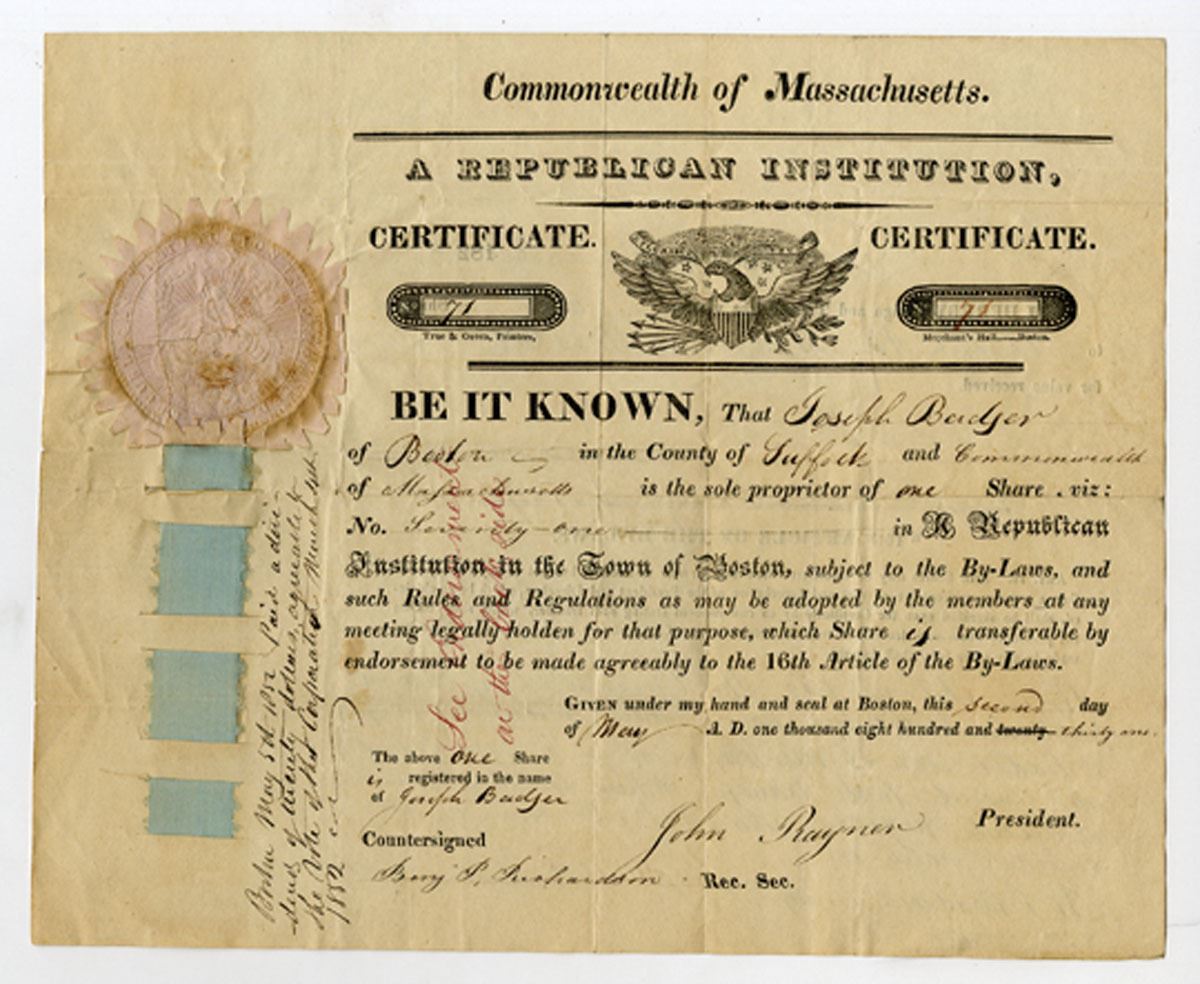 Commonwealth of Massachusetts.
A REPUBLICAN INSTITUTION,
CERTIFICATE. CERTIFICATE.
71 71
True & Green, Printers, Merchant's Hall, Boston.
BE IT KNOWN, That Joseph Badger
of Boston in the County of Suffolk and Commonwealth
of Massachusetts is the sole proprietor of one Share viz:
No. Seventy-one in A Republican
Institution in the Town of Boston, subject to the By-Laws, and
such Rules and Regulations as may be adopted by the members at any
meeting legally holden for that purpose, which Share is transferable by
endorsement to be made agreeably to the 16th Article of the By-Laws.
GIVEN under my hand and seal at Boston, this second day
of May A. D. one thousand eight hundred and twenty thirty one.
The above one Share
is registered in the name
of Joseph Badger
John Rayner President.
Countersigned
Benj P. Richardson Rec. Sec.
See
on the
Boston May 5th 1852 Paid a divi-
-dend of twenty dollars, agreeable to
the Vote of the Corporation March
1852
for value received
182